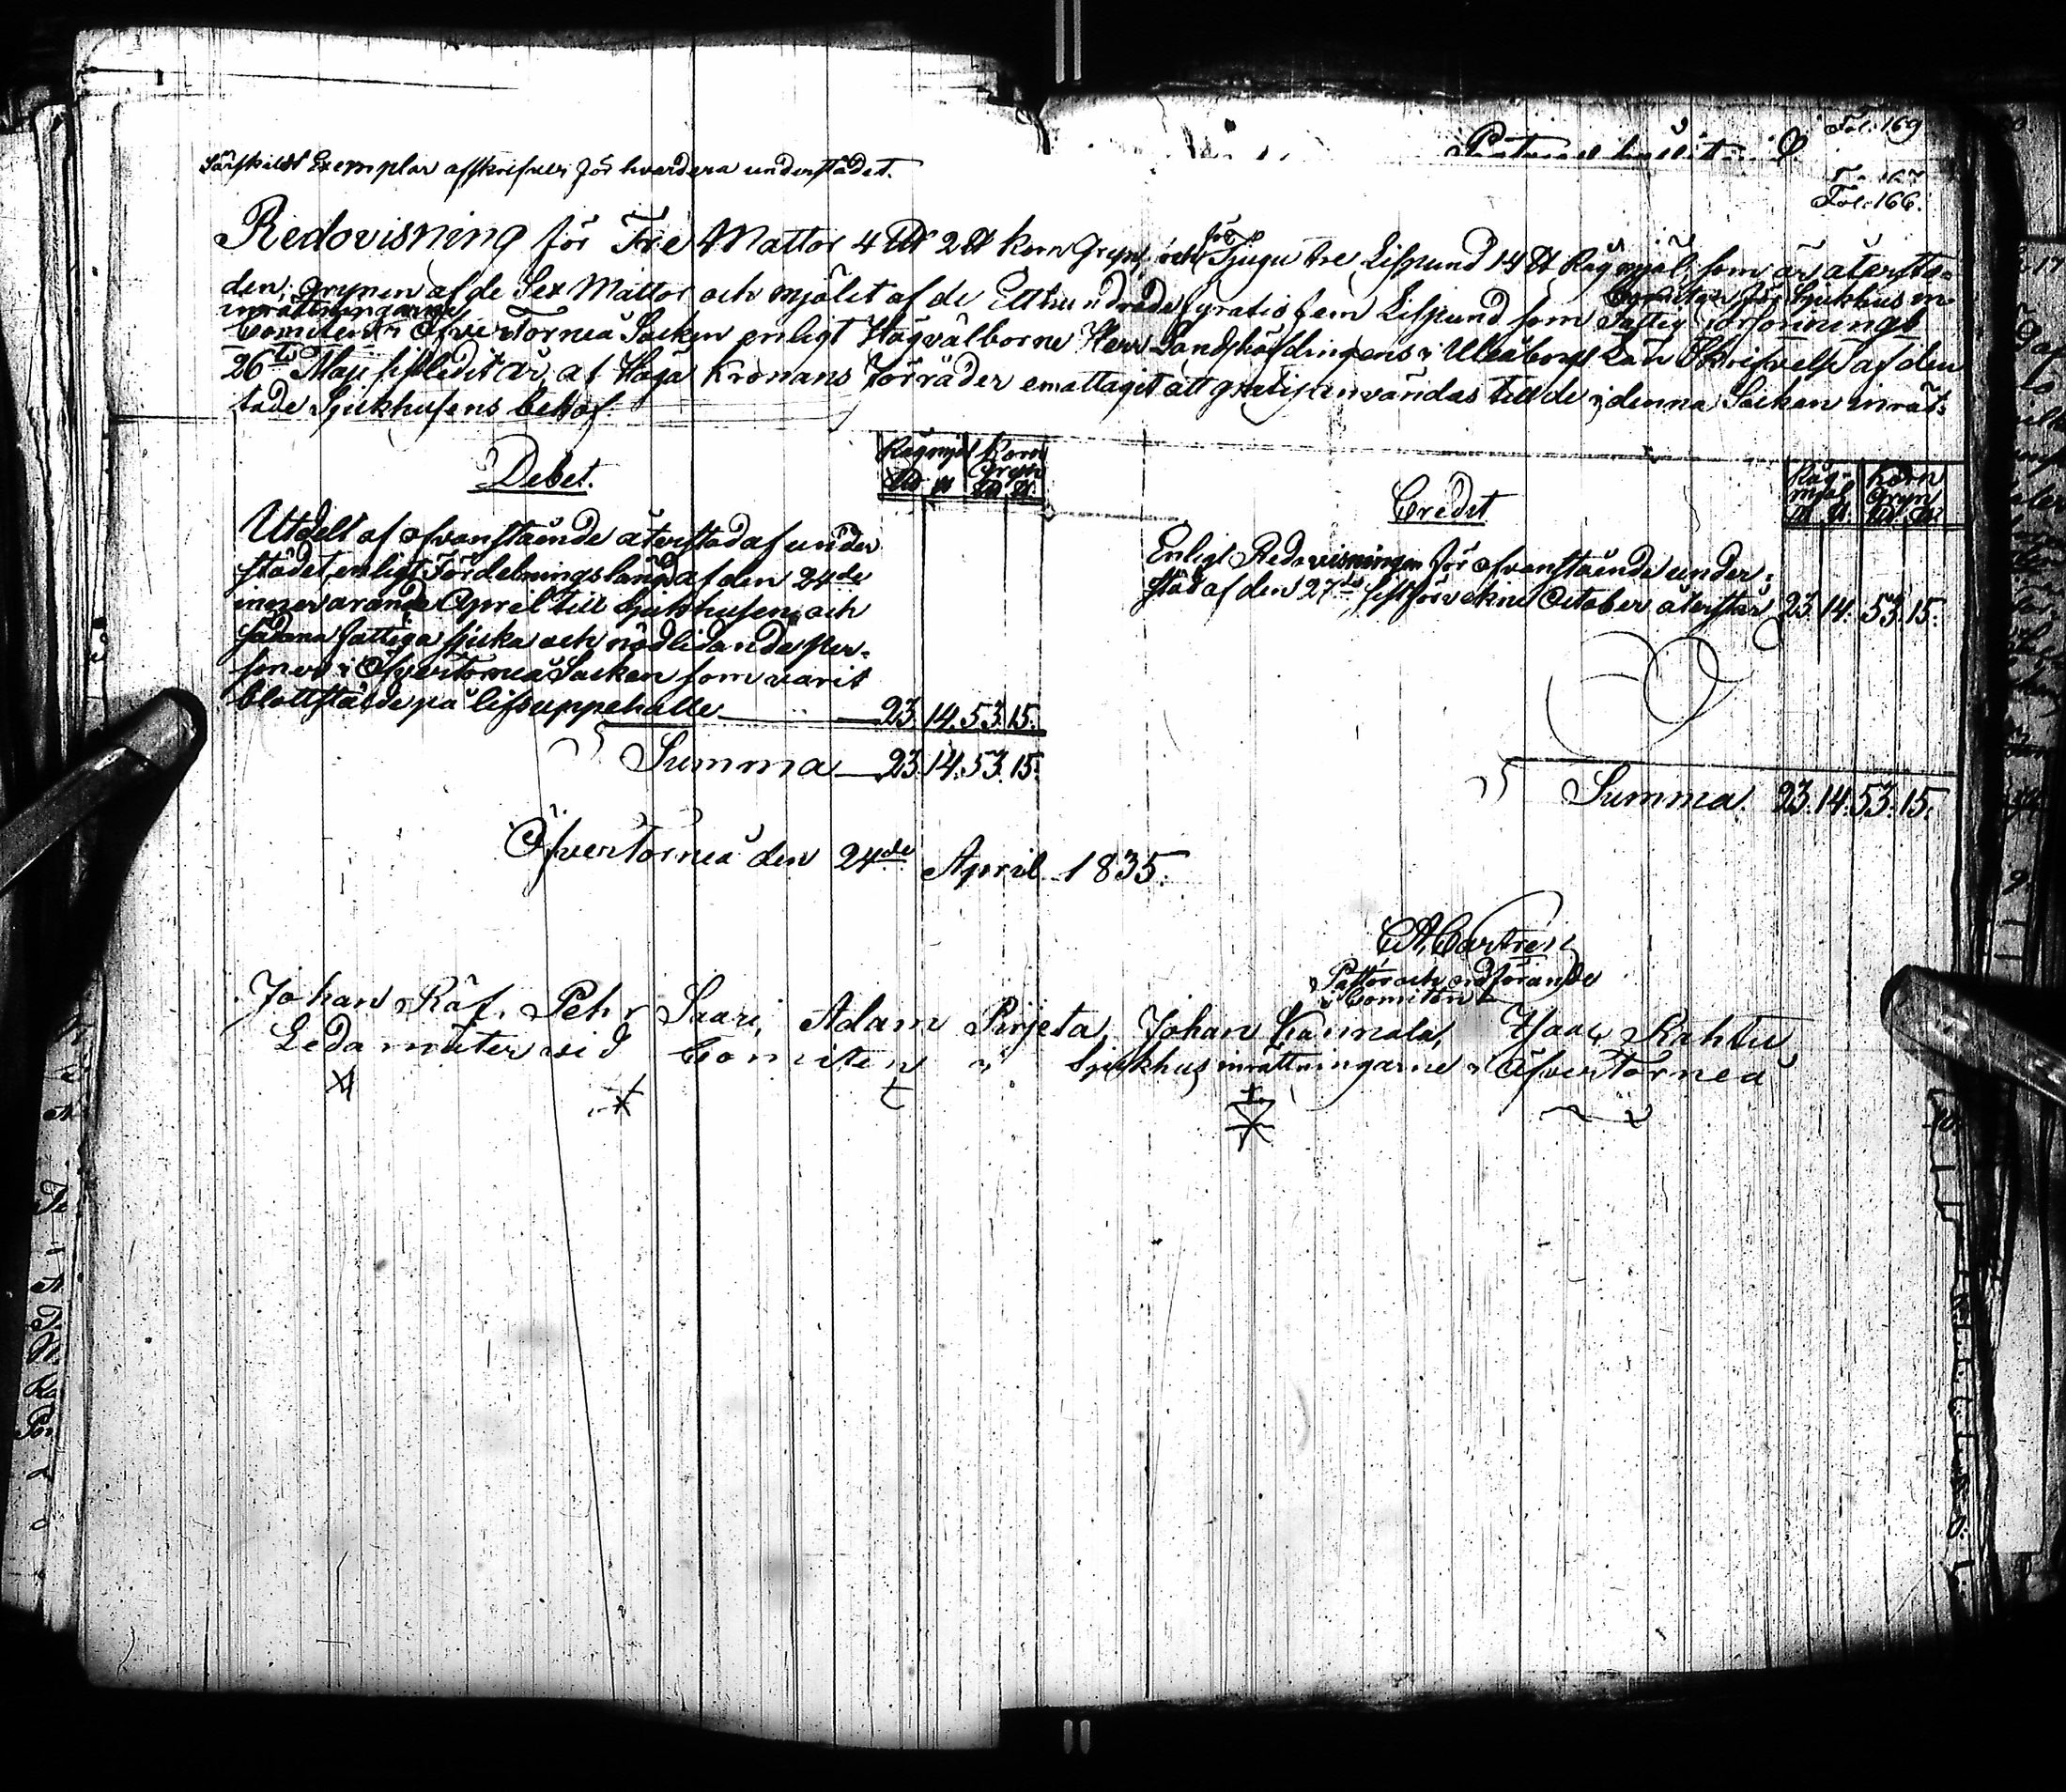 Fol. 169
Fol. 166.
Särskildt Exemplar afskrifves för hvardera understödet.
Redovisning för Tre Mattor 4 L℔ 2 ℔ Korn Gryn, och för Tjugu tre Lispund 14 ℔ Rågmjöl, som är återstå-
den, grynen af de Sex Mattor och mjölet af de Etthundrade gratis fem Lispund som Comiten för Sjukhus in-
rättningarne i ÖfverTorneå Socken enligt Högvälborne Herr Landshöfdingens i Uleåborgs Län Skrifvelse af den
26te Maji sistledit år, af Höga Kronans förråder emottagit att gratis användas till de i denna Socken inrät-
tade Sjukhusens behof.
Debet.
Rågmjöl Korn Gryn
L℔ ℔ L℔ ℔
Utdelt af ofvanstående återstod af under
stödet, enligt Fördelningslängd af den 24de
innevarande April till Sjukhusen och
sådana fattiga sjuka och nödlidande per-
soner i Öfvertorneå Socken som varit
blottstälde på lifsuppehälle 23. 14. 53. 15.
Summa 23. 14. 53. 15.
Credit
Rågmjöl Korn Gryn
L℔ ℔ L℔ ℔
Enligt Redovisningen för ofvanstående under-
stöd af den 27de sistförvekne October återstår 23. 14. 53. 15.
Summa 23. 14. 53. 15.
Öfvertorneå den 24de April 1835.
Castren
Pastor och ordförande
i Comitén
Johan Räf, Pehr Saari, Adam Pirjeta, Johan Kannala, Isaac Rahtu
Ledamöter vid Comiten i Sjukhus inrättningarne i ÖfverTorneå